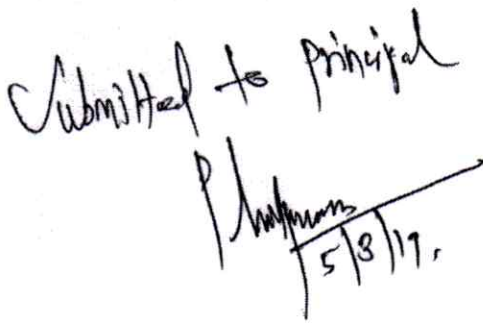 Submitted to principal
5/3/19.